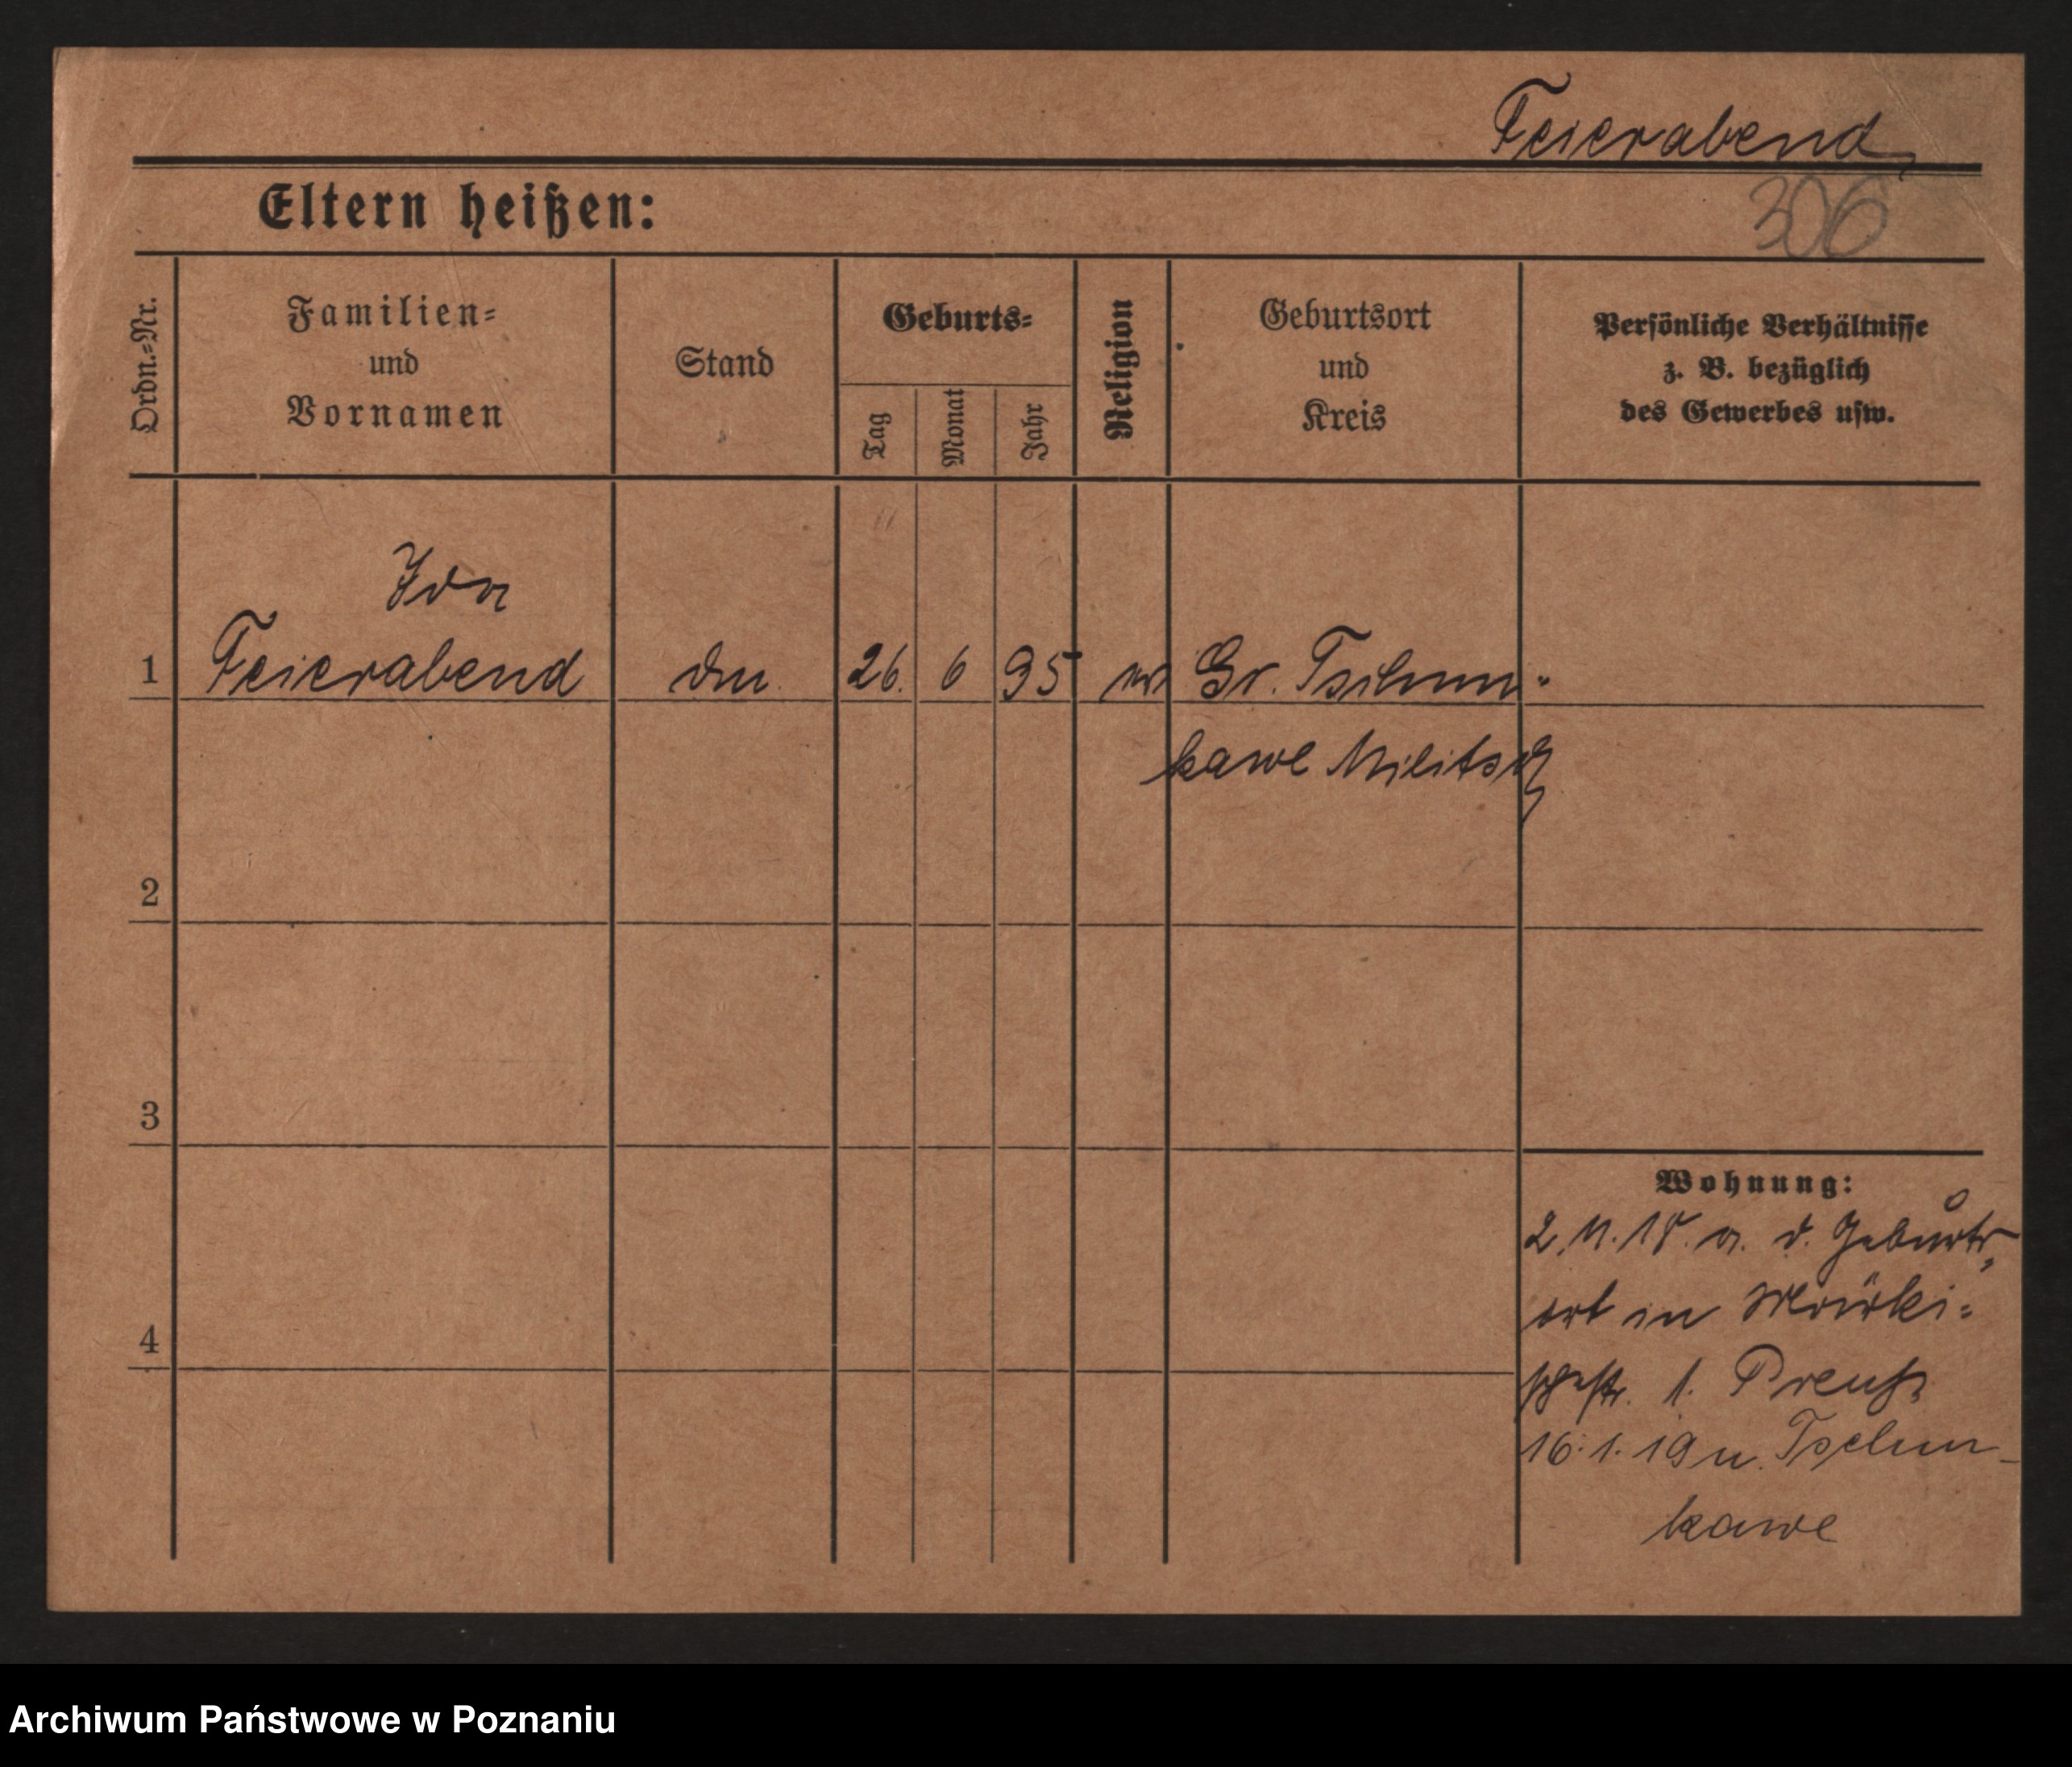 Feierabend
306
Eltern heißen:
Ordn.=Nr.
Familien=
und
Vornamen
Stand
Geburts=
Tag
Monat
Jahr
Religion
Geburtsort
und
Kreis
Persönliche Verhältnisse
z. B. bezüglich
des Gewerbes usw.
Ida
1 Feierabend 26. 6 95 Gr. Tschun-
kawe Militsch
2
3
4
Wohnung:
2.11.18. a. d. Geburts-
ort in Märki=
schestr. 1. Preuß
16.1.19 n. Tschun-
kawe
Archiwum Państwowe w Poznaniu